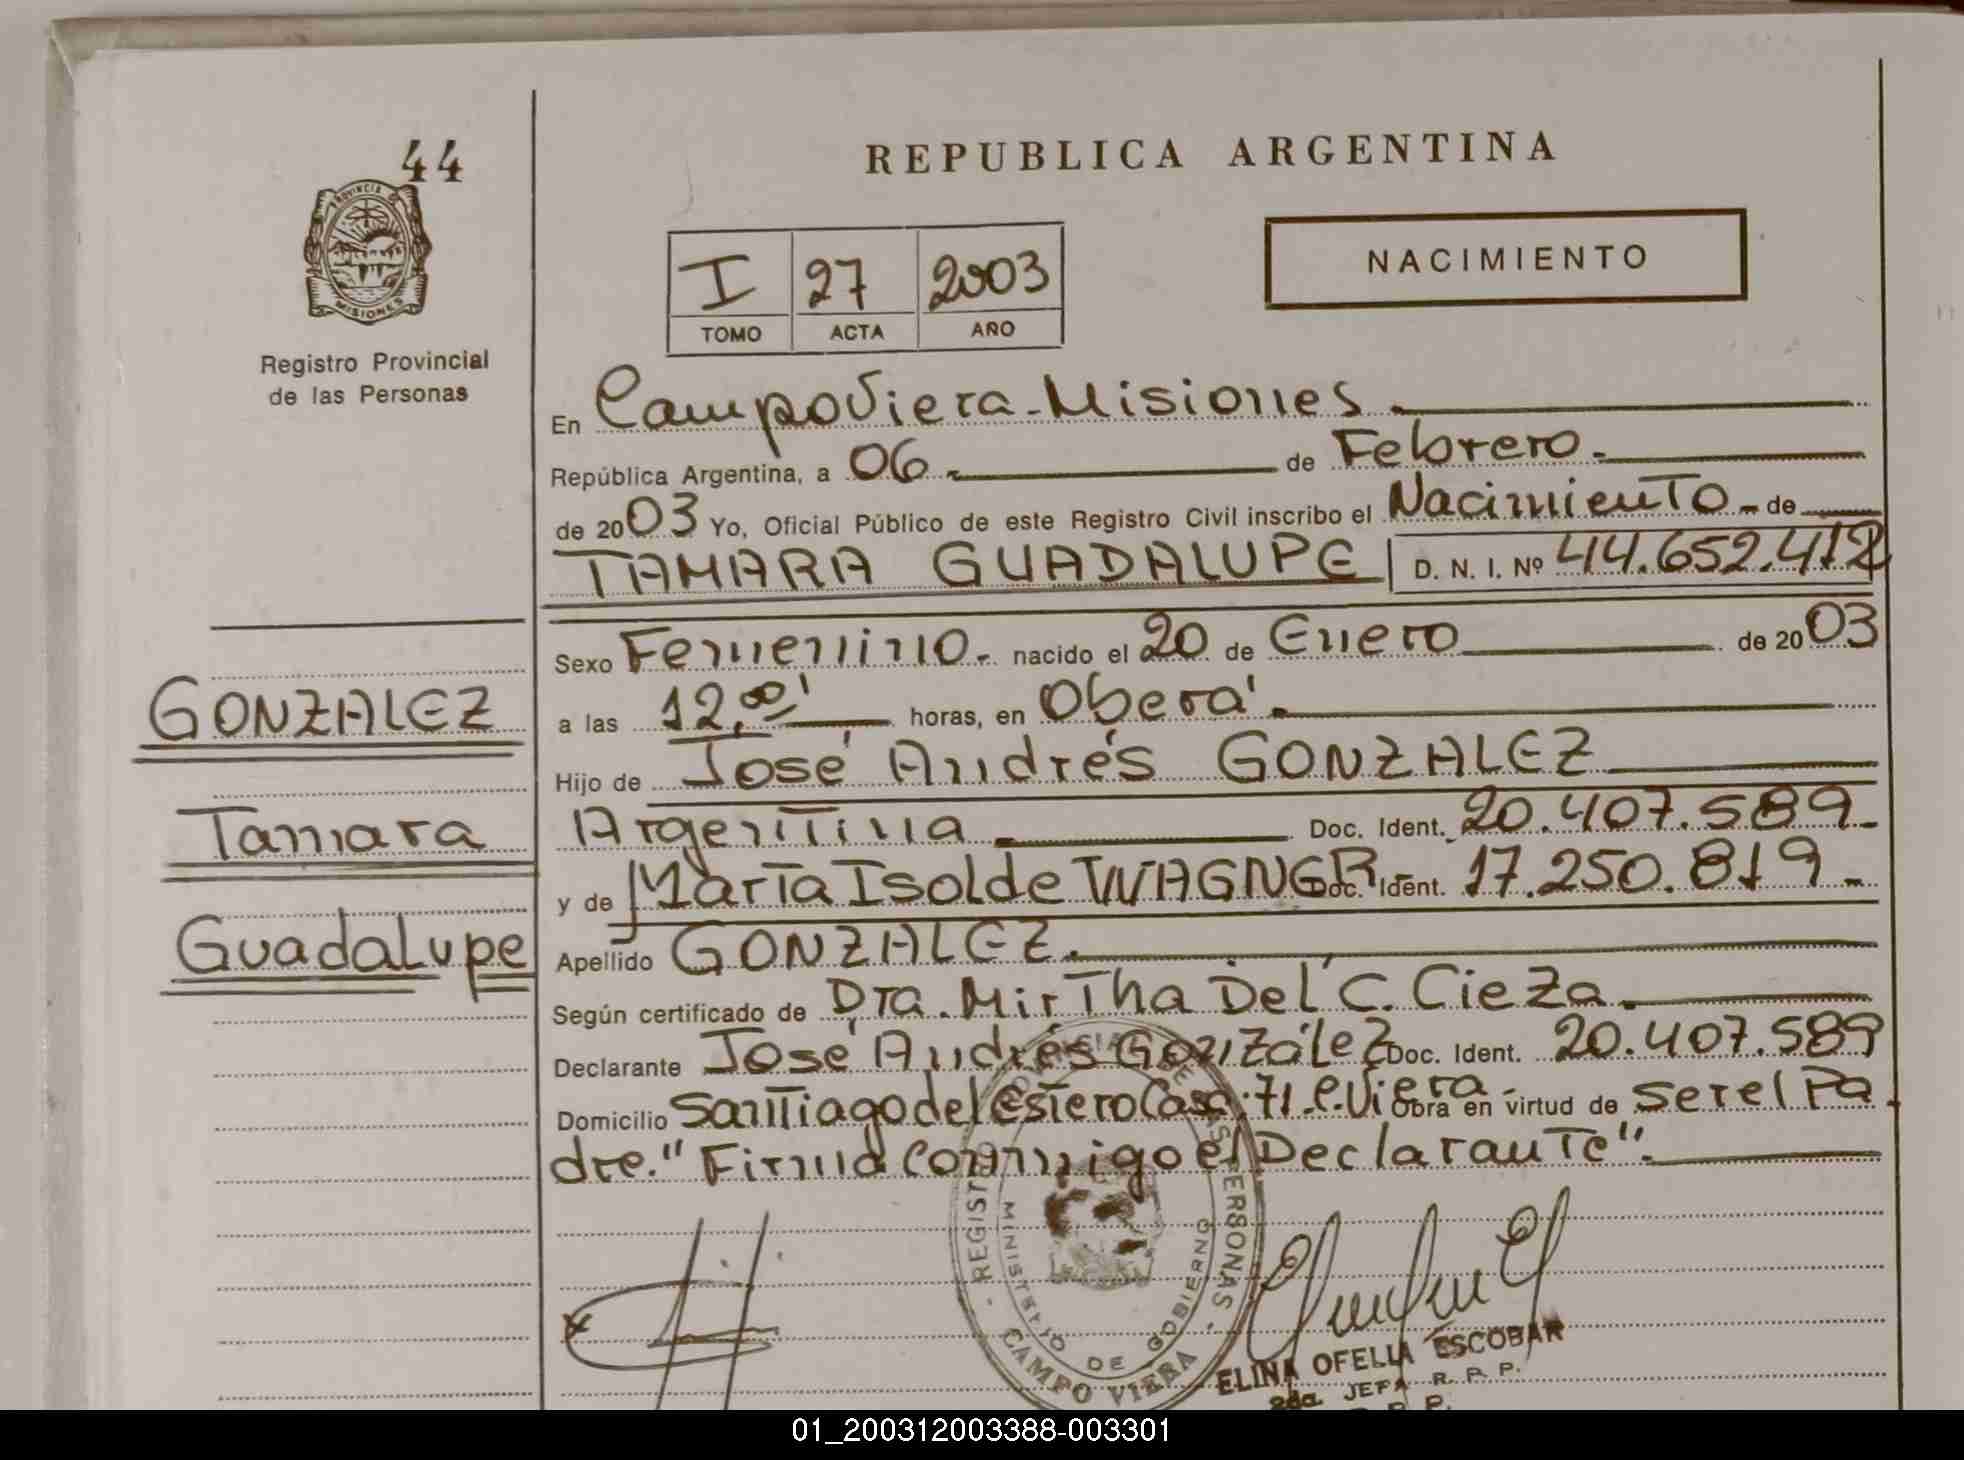 44
PROVINCIA DE
MISIONES
Registro Provincial
de las Personas
GONZALEZ
Tamara
Guadalupe
REPUBLICA ARGENTINA
I 27 2003
TOMO ACTA AÑO
NACIMIENTO
En Campo Viera - Misiones.
República Argentina, a 06.- de Febrero.-
de 2003 Yo, Oficial Público de este Registro Civil inscribo el Nacimiento - de
TAMARA GUADALUPE D. N. I. Nº 44.652.412
Sexo Femenino.- nacido el 20 de Enero de 2003
a las 12.00' horas, en Oberá.
Hijo de José Andrés GONZALEZ
Argentina.- Doc. Ident. 20.407.589.-
y de María Isolde WAGNER Doc. Ident. 17.250.819.-
Apellido GONZALEZ.
Según certificado de Dra. Mirtha Del C. Cieza.
Declarante José Andrés González Doc. Ident. 20.407.589
Domicilio Santiago del Estero Casa: 71.C. Viera Obra en virtud de ser el Pa
dre." Firma conmigo el Declarante".
REGISTRO PROVINCIAL DE LAS PERSONAS
MINISTERIO DE GOBIERNO
CAMPO VIERA
ELINA OFELIA ESCOBAR
2da JEFA R. P. P.
01_200312003388-003301